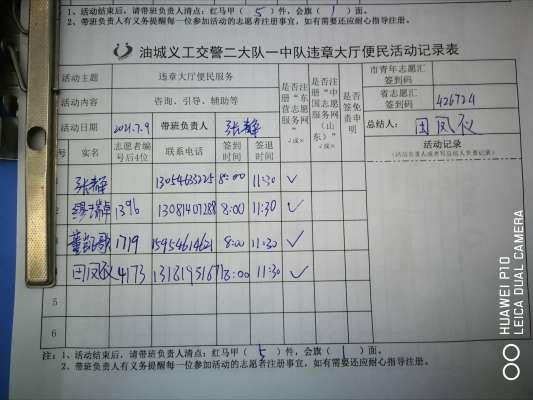 1、活动结束后，请带班负责人清点：红马甲（ 5 ）件，会旗（ 1 ）面。
2、带班负责人有义务提醒每一位参加活动的志愿者注册事宜，如有需要还应耐心指导注册。
油城义工交警二大队一中队违章大厅便民活动记录表
活动主题 违章大厅便民服务 是否注册“东营志愿服务网” √或× 是否注册“中国志愿服务网（山东）” √或× 是否签免责申明 市青年志愿汇签到码
活动内容 咨询、引导、辅助等 省志愿汇签到码 426724
活动日期 2021.7.9 带班负责人 张静 总结人： 田凤仪
号 实名 志愿者编号后4位 联系电话 签到时间 签退时间 活动记录
（活动负责人或者写总结人负责记录）
张静 13054633225 8:00 11:30 √
缪瑞卓 1396 13081407288 8:00 11:30 √
董凯歌 1719 15954614621 8:00 11:30 √
田凤仪 4173 13181951671 8:00 11:30 √
5
6
注：1、活动结束后，请带班负责人清点：红马甲（ 5 ）件，会旗（ 1 ）面。
2、带班负责人有义务提醒每一位参加活动的志愿者注册事宜，如有需要还应耐心指导注册。
HUAWEI P10
LEICA DUAL CAMERA